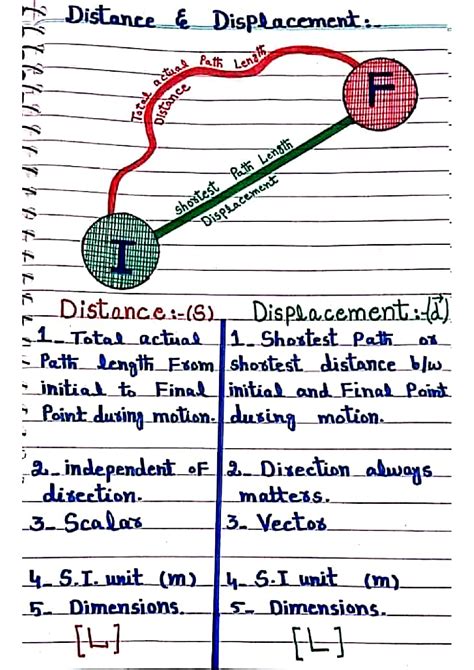 Distance & Displacement:-
Total actual Path Length
Distance
F
Shortest Path Length
Displacement
I
Distance:-(S)
1- Total actual
Path length From
initial to Final
Point during motion.
2- independent of
direction.
3- Scalar
4- S.I. unit (m)
5- Dimensions.
[L]
Displacement:-(d⃗)
1- Shortest Path or
shortest distance b/w
initial and Final Point
during motion.
2- Direction always
matters.
3- Vector
4- S.I unit (m)
5- Dimensions.
[L]